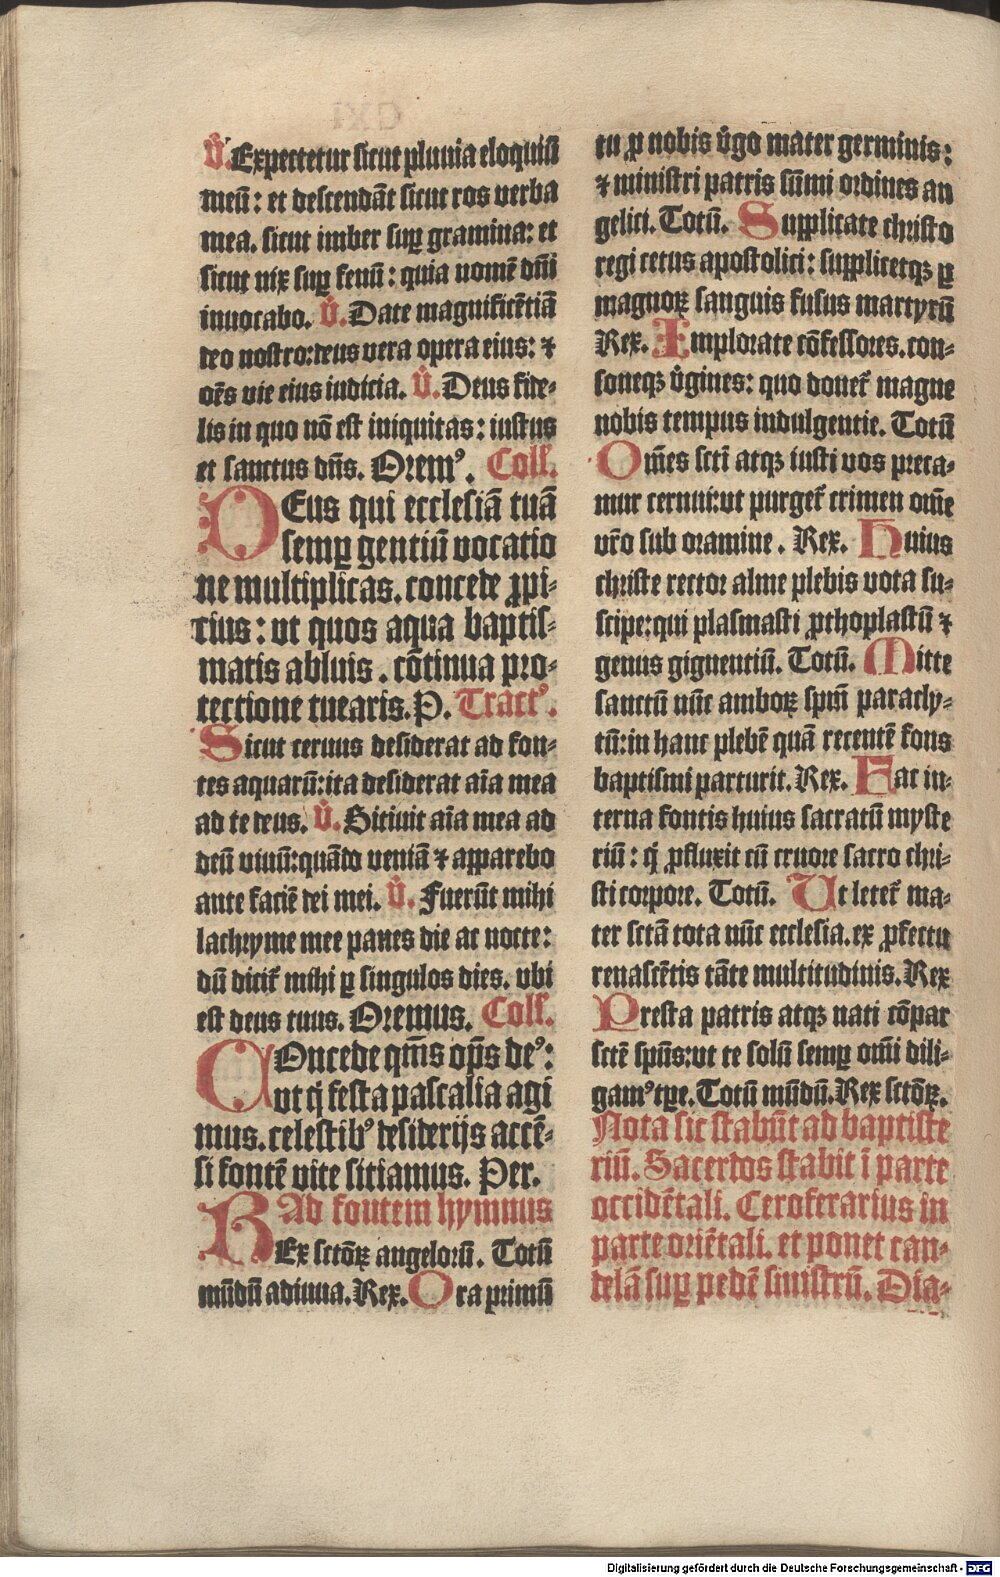 V̊. Expectetur sicut pluuia eloquiū
meū: et descendāt sicut ros verba
mea. sicut imber suꝑ gramina: et
sicut nix suꝑ fenū: quia nomē dn̄i
inuocabo. V̊. Date magnificētiā
deo nostro: deus vera opera eius: ⁊
oēs vie eius iudicia. V̊. Deus fide-
lis in quo nō est iniquitas: iustus
et sanctus dn̄s. Oremꝰ. Coll̄.
DEus qui ecclesiā tuā
semꝑ gentiū vocatio
ne multiplicas. concede ꝓpi-
cius: vt quos aqua baptis-
matis abluis. cōtinua pro-
tectione tuearis. P. Tractꝰ.
Sicut ceruus desiderat ad fon-
tes aquarū: ita desiderat aīa mea
ad te deus. V̊. Sitiuit aīa mea ad
deū viuū: quādo veniā ⁊ apparebo
ante faciē dei mei. V̊. Fuerūt mihi
lachryme mee panes die ac nocte:
dū dicit̄ mihi ꝑ singulos dies. vbi
est deus tuus. Oremus. Coll̄.
COncede qm̄s op̄s deꝰ:
vt q̄ festa paschalia agi
mus. celestibꝰ desiderijs accē-
si fontē vite sitiamus. Per.
Ad fontem hymnus
REx sctōꝝ angeloꝝ. Totū
mūdū adiuua. Rex. Ora primū
tu ꝓ nobis v̄go mater germinis:
⁊ ministri patris sūmi ordines an
gelici. Totū. Supplicate christo
regi cetus apostolici: supplicetqꝫ ꝑ
magnoꝝ sanguis fusus martyrū
Rex. Implorate cōfessores. con-
soneqꝫ v̄gines: quo donet̄ magne
nobis tempus indulgentie. Totū
Om̄es scti atqꝫ iusti vos preca-
mur cernui: vt purget̄ crimen om̄e
vr̄o sub oramine. Rex. Huius
christe rector alme plebis vota su-
scipe: qui plasmasti ꝓthoplastū ⁊
genus gignentiū. Totū. Mitte
sanctū nūc amboꝝ spm̄ paracly-
tū: in hanc plebē quā recentē fons
baptismi parturit. Rex. Fac in-
terna fontis huius sacratū myste
riū: q̄ ꝓfluxit cū cruore sacro chri-
sti corpore. Totū. Ut letet̄ ma-
ter sctā tota nūc ecclesia. ex ꝓfectu
renascētis tāte multitudinis. Rex
Presta patris atqꝫ nati cōpar
sctē sp̄us: vt te solū semꝑ om̄i dili-
gamꝰ tꝑe. Totū mūdū. Rex sctōꝝ.
Nota sic stabūt ad baptiste
riū. Sacerdos stabit ī parte
occidētali. Ceroferarius in
parte oriētali. et ponet can-
delā suꝑ pedē sinistrū. Dia-
Digitalisierung gefördert durch die Deutsche Forschungsgemeinschaft - DFG